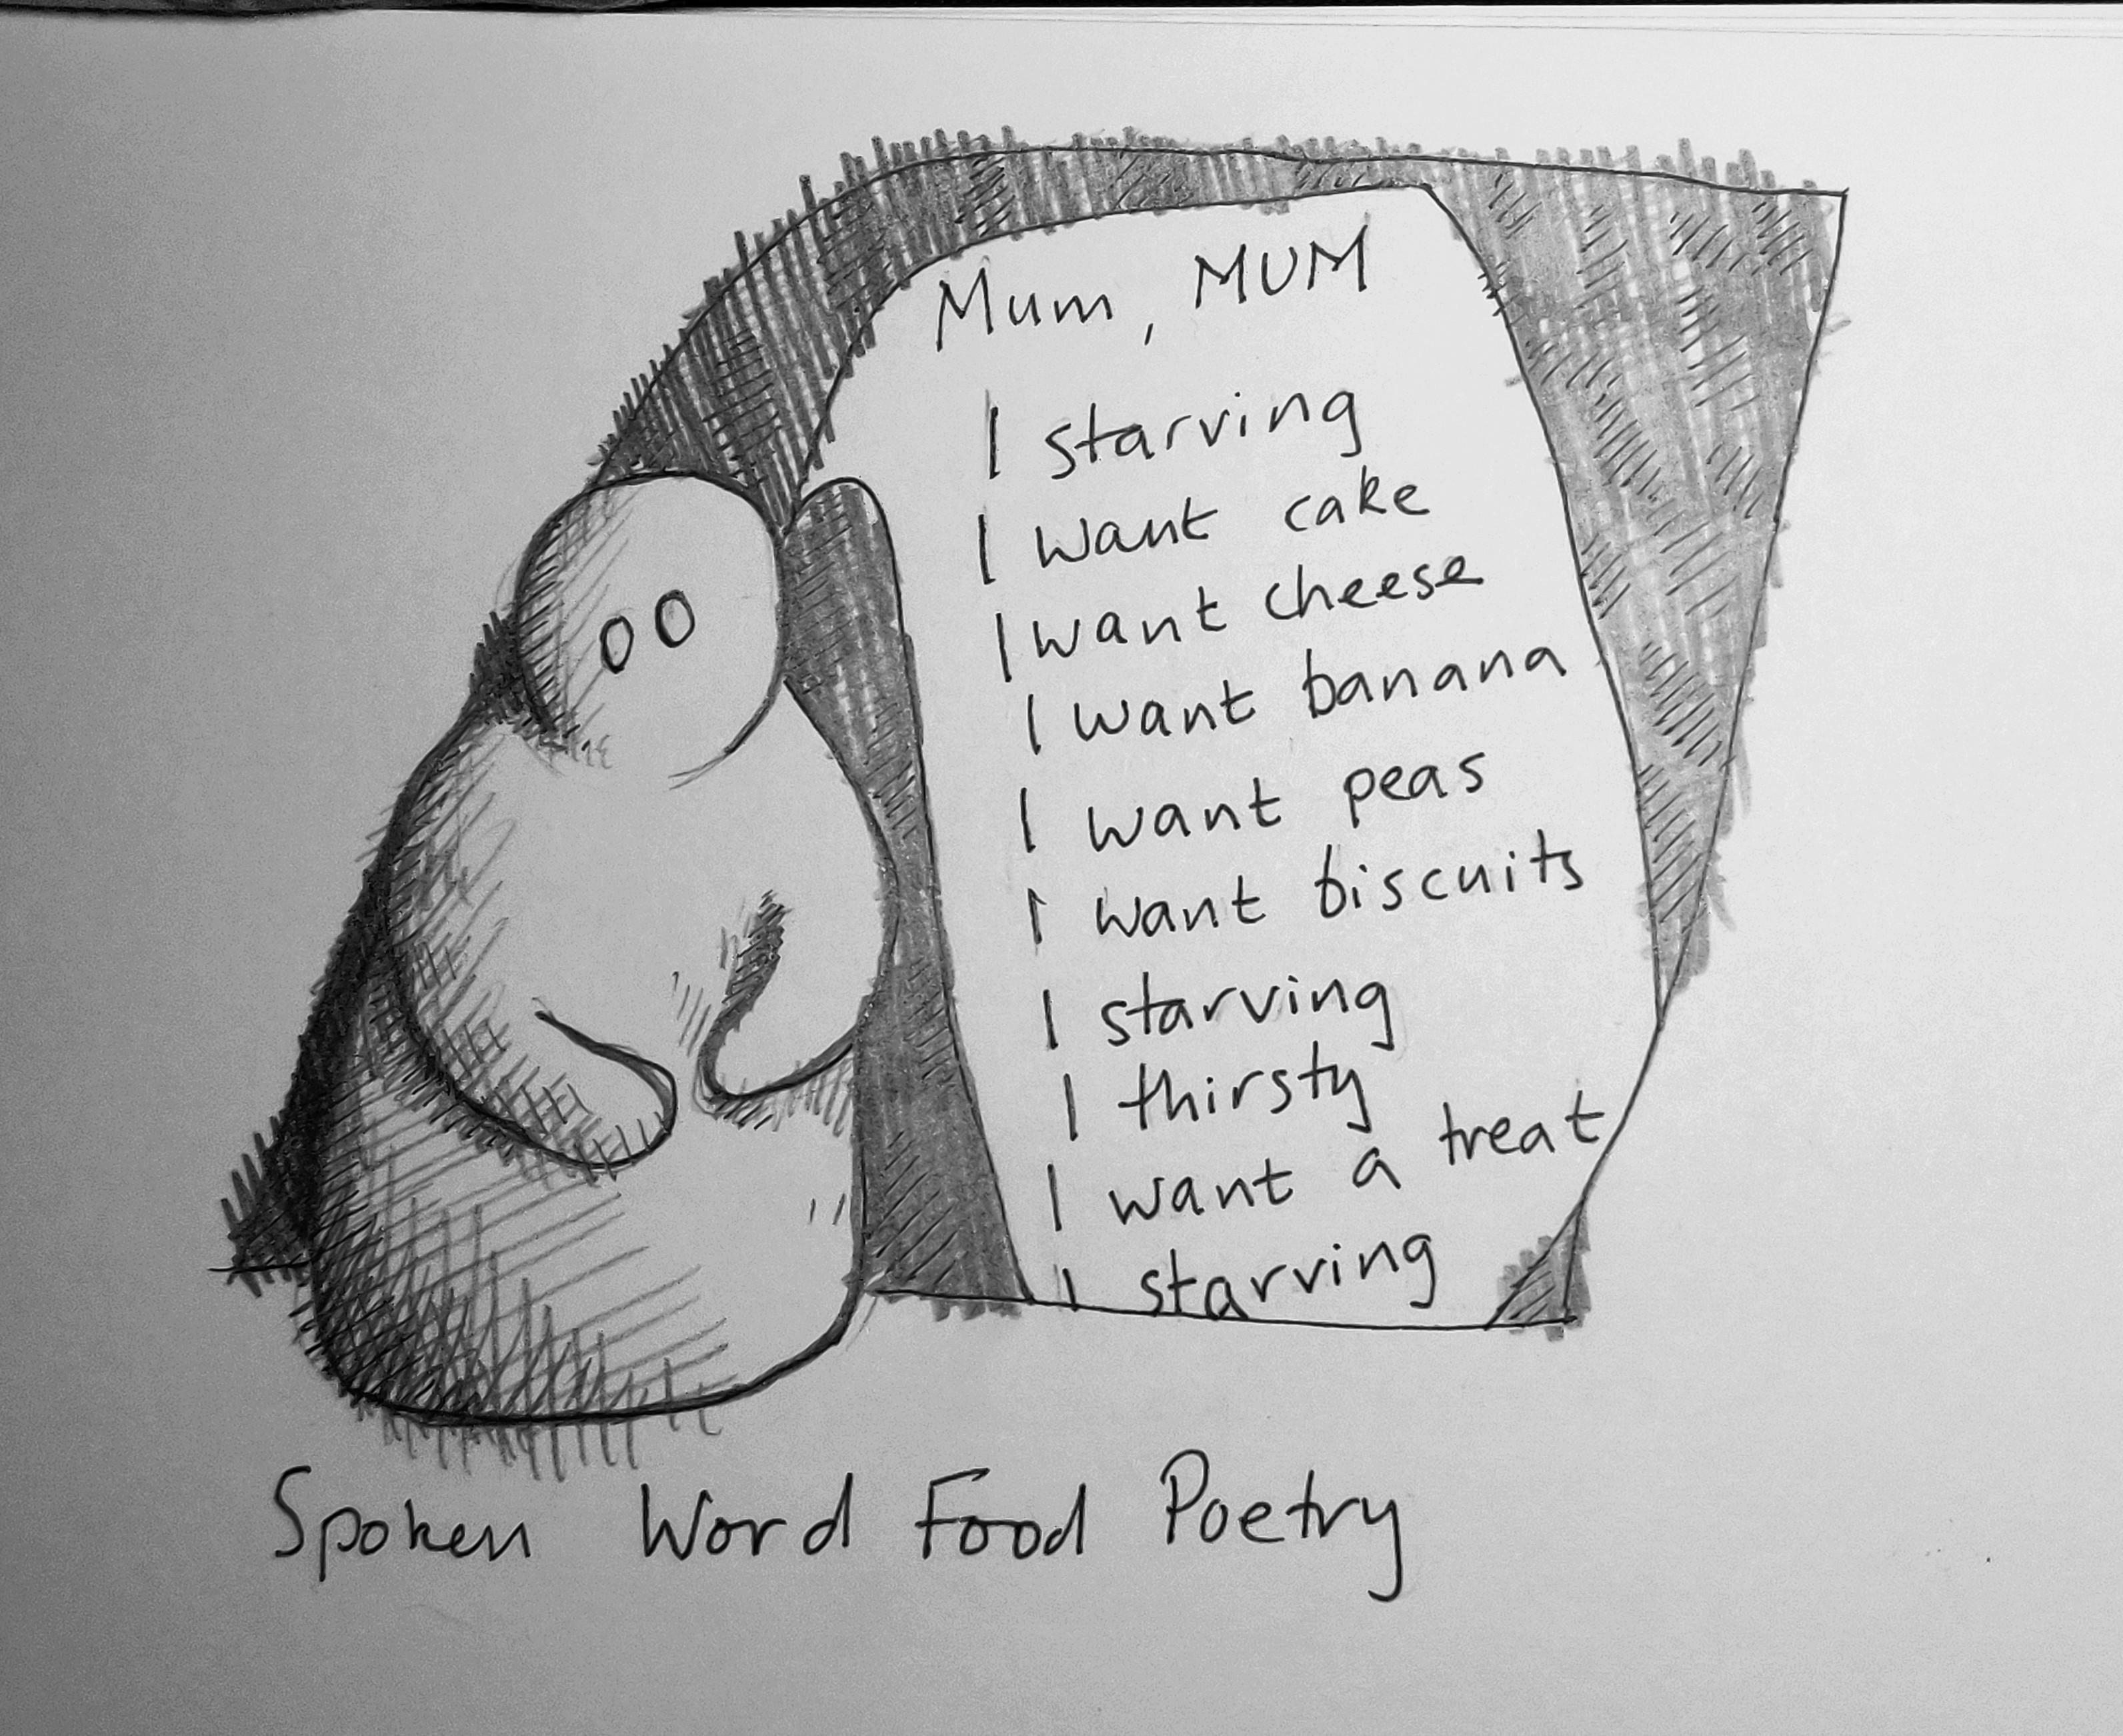 Mum, MUM
I starving
I want cake
I want cheese
I want banana
I want peas
I want biscuits
I starving
I thirsty
I want a treat
I starving
Spoken Word Food Poetry